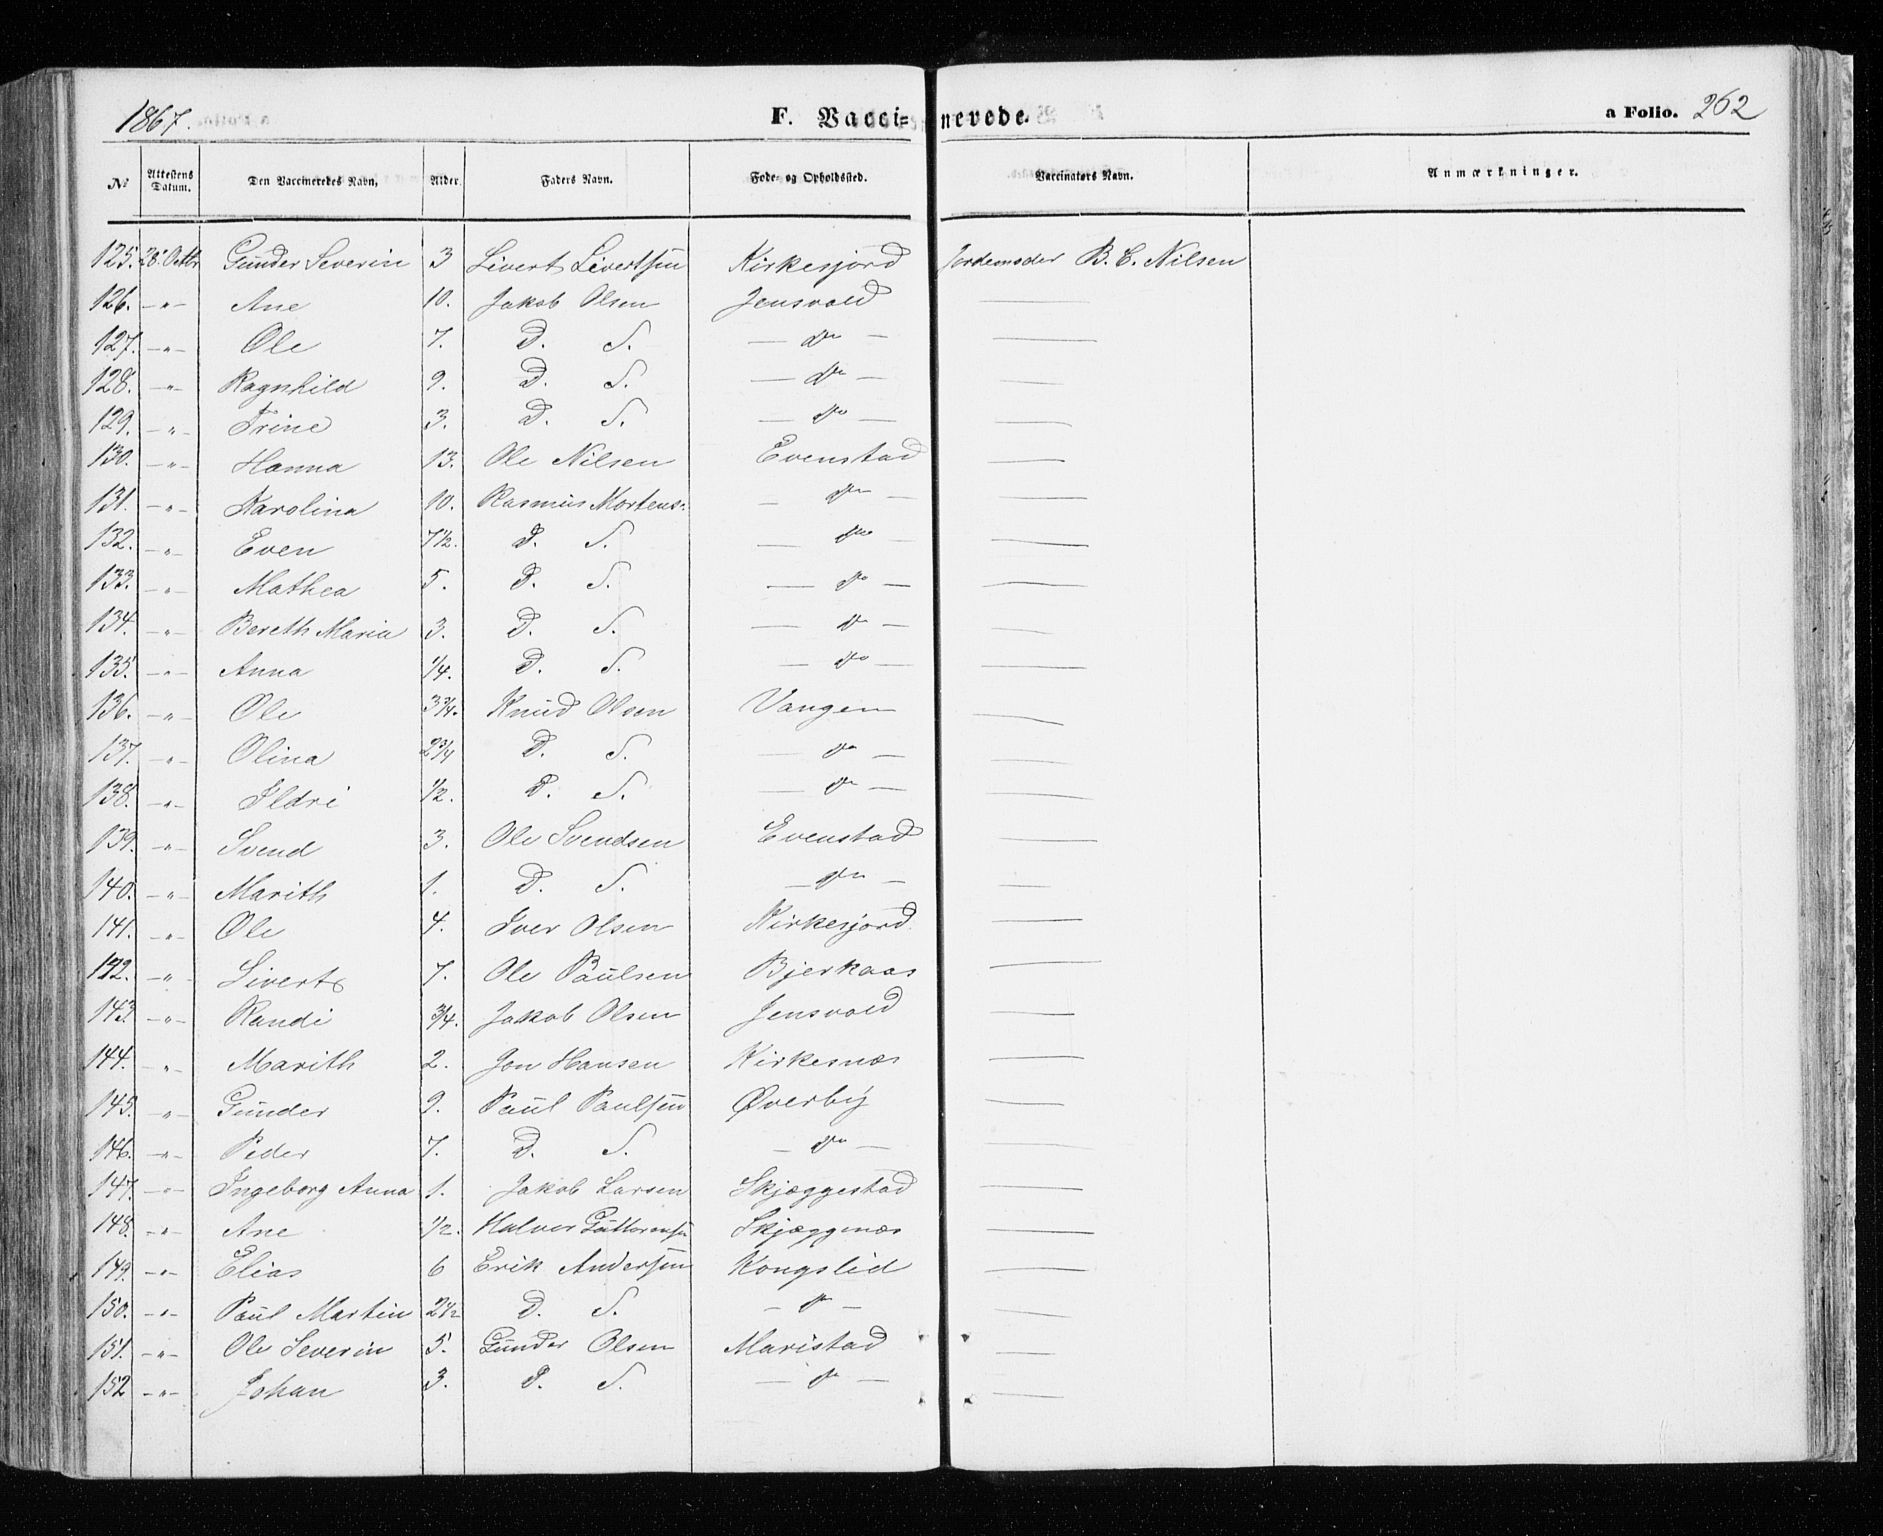 1867. F. Vacci= nerede. a Folio. 262
No Attestens Datum. Den Vaccineredes Navn, Alder. Faders Navn. Føde- og Opholdssted. Vaccinators Navn. Anmærkninger.
125. 28. Octbr Gunder Severin 3 Sivert Sivertsen Kirkesjord Jordemoder B. C. Nilsen
126. -"- Ane 10. Jakob Olsen Jensvold —
127. -"- Ole 7. D. S. — do — —
128. -"- Ragnhild 9. D. S. — do — —
129. -"- Trine 3. D. S. — do — —
130. -"- Hanna 13. Ole Nilsen Evenstad —
131. -"- Karolina 10. Rasmus Mortens: — do — —
132. -"- Even 7½. D. S. — do — —
133. -"- Mathea 5. D. S. — do — —
134. -"- Bereth Maria 3. D. S. — do — —
135. -"- Anna 1/4. D. S. — do — —
136. -"- Ole 3¾. Knud Olsen Vangen —
137. -"- Olina 2¾ D. S. — do — —
138. -"- Ildri 1/2. D. S. — do — —
139. -"- Svend 3. Ole Svendsen Evenstad —
140. -"- Marith 1. D. S. — do — —
141. -"- Ole 4. Iver Olsen Kirkesjord. —
142. -"- Sivert 7. Ole Paulsen Bjerkaas —
143. -"- Randi 3/4. Jakob Olsen Jensvold —
144. -"- Marith 2. Jon Hansen Kirkesnæs —
145. -"- Gunder 9. Paul Paulsen Øverby —
146. -"- Peder 7. D. S. — do — —
147. -"- Ingeborg Anna 1. Jakob Larsen Skjæggestad —
148. -"- Ane 1/2. Halvor Guttormsen Skjæggenæs —
149. -"- Elias 6 Erik Andersen Kongslid —
150. -"- Paul Martin 2½ D. S. — do — —
151. -"- Ole Severin 5. Gunder Olsen Maristad —
152 -"- Johan 3. D. S. — do — —